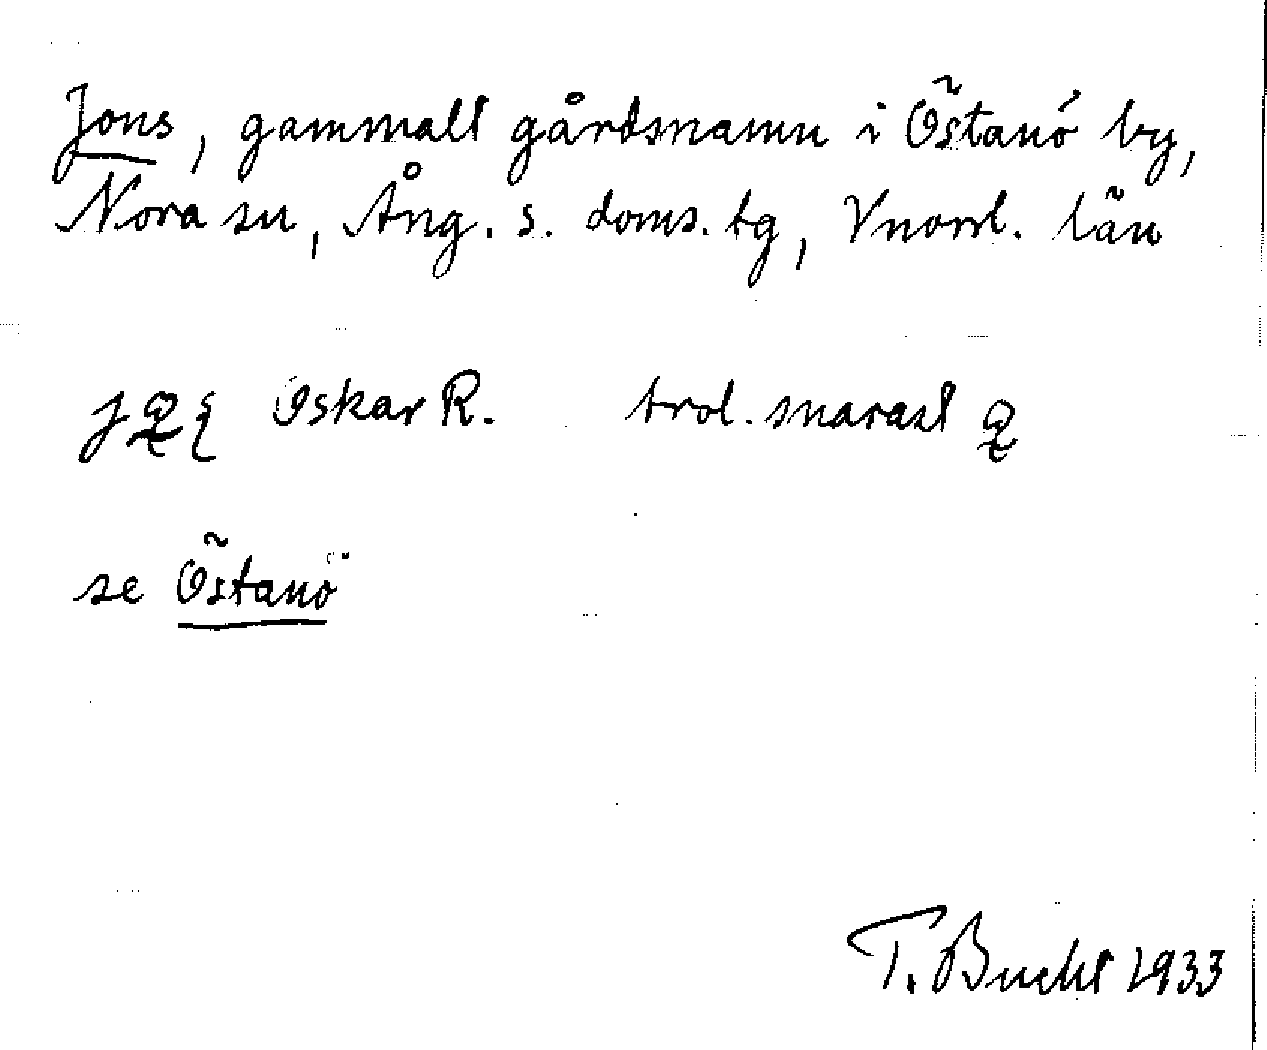 Jons, gammalt gårdsnamn i Östanö by,
Nora sn, Ång. s. doms. tg, Vnorrl. län
Oskar R. trol. snarast
se Östanö
T. Bucht 1933